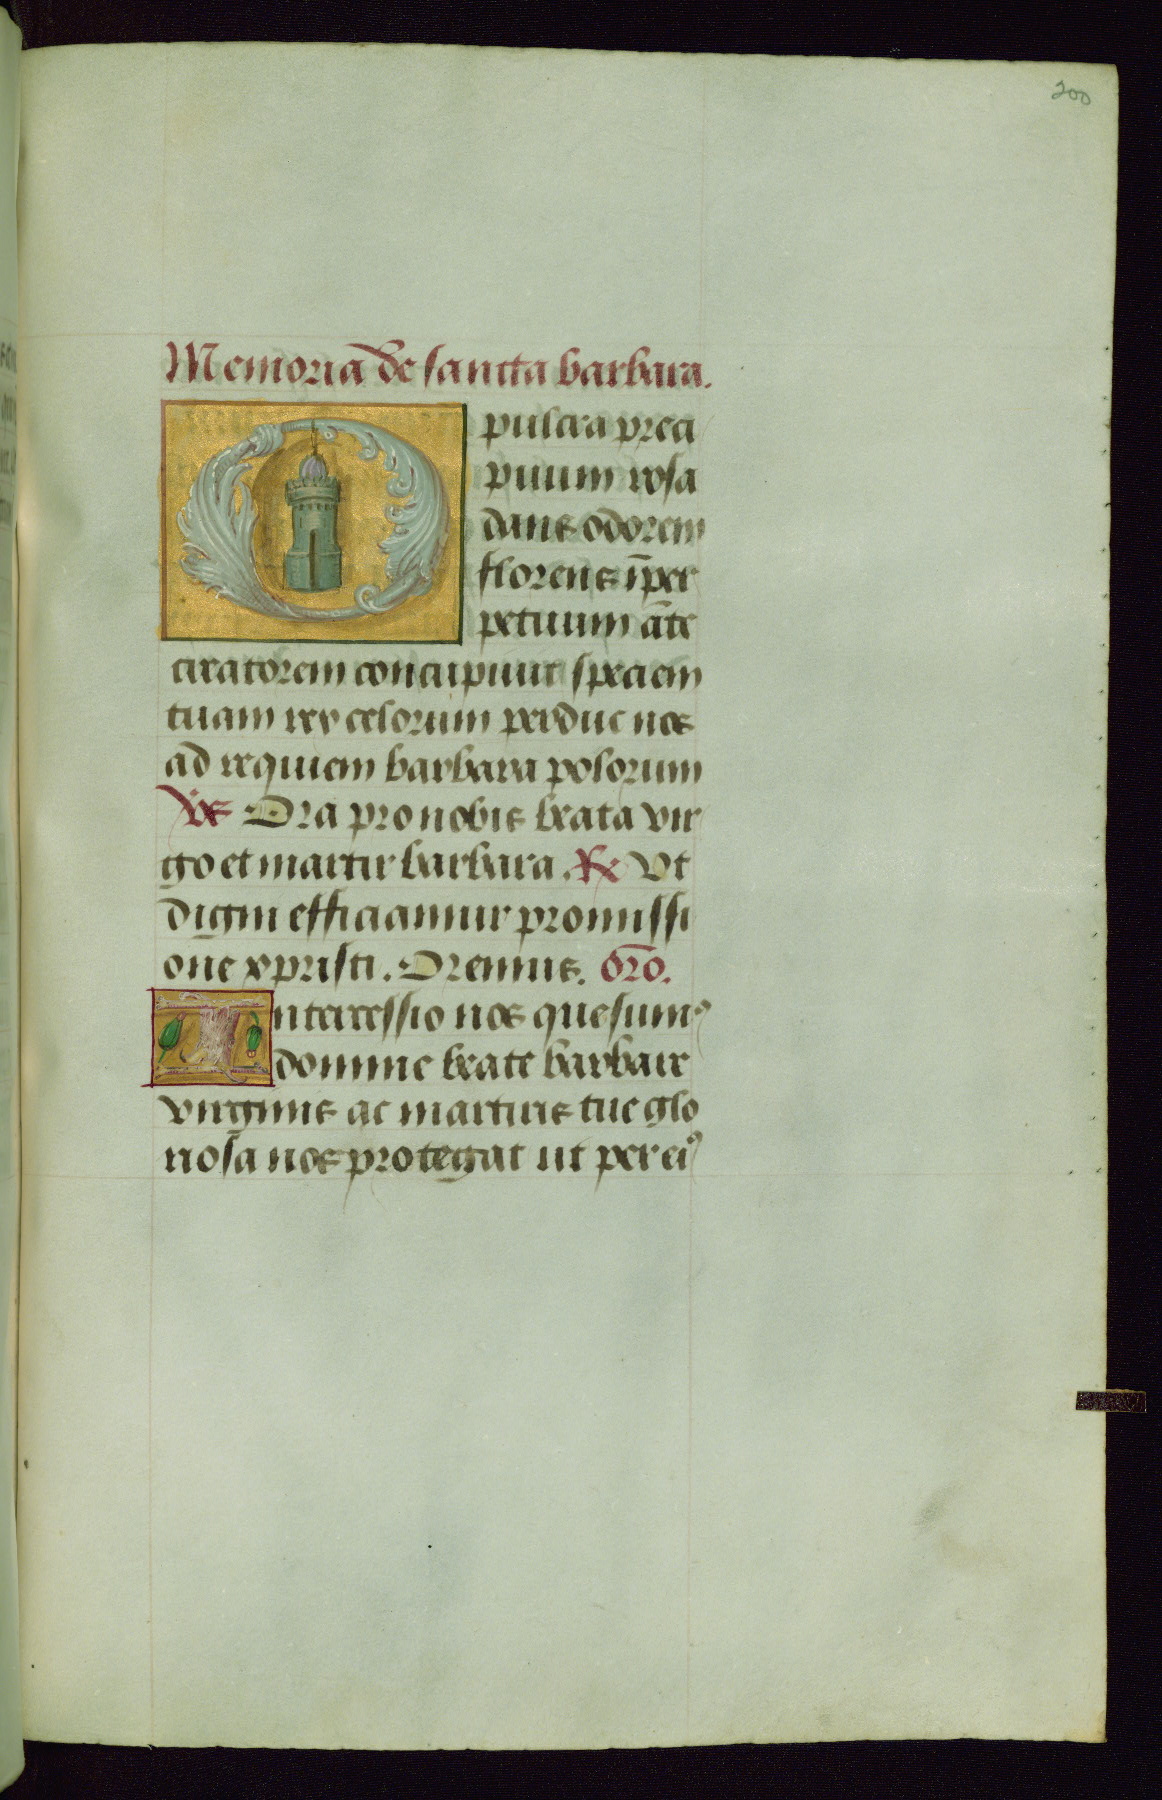 200
Memoria de sancta barbara.
O pulcra preci
puum rosa
dans odorem
florens īper
petuum āte
creatorem concupiuit speciem
tuam rex celorum perduc nos
ad requiem barbara polorum
V̄s Ora pro nobis beata vir
go et martir barbara. Rx Vt
digni efficiamur promissi
one xpristi. Oremus. Oro.
Intercessio nos quesumꝰ
domine beate barbare
virginis ac martiris tue glo
riosa nos protegat ut per eiꝰ